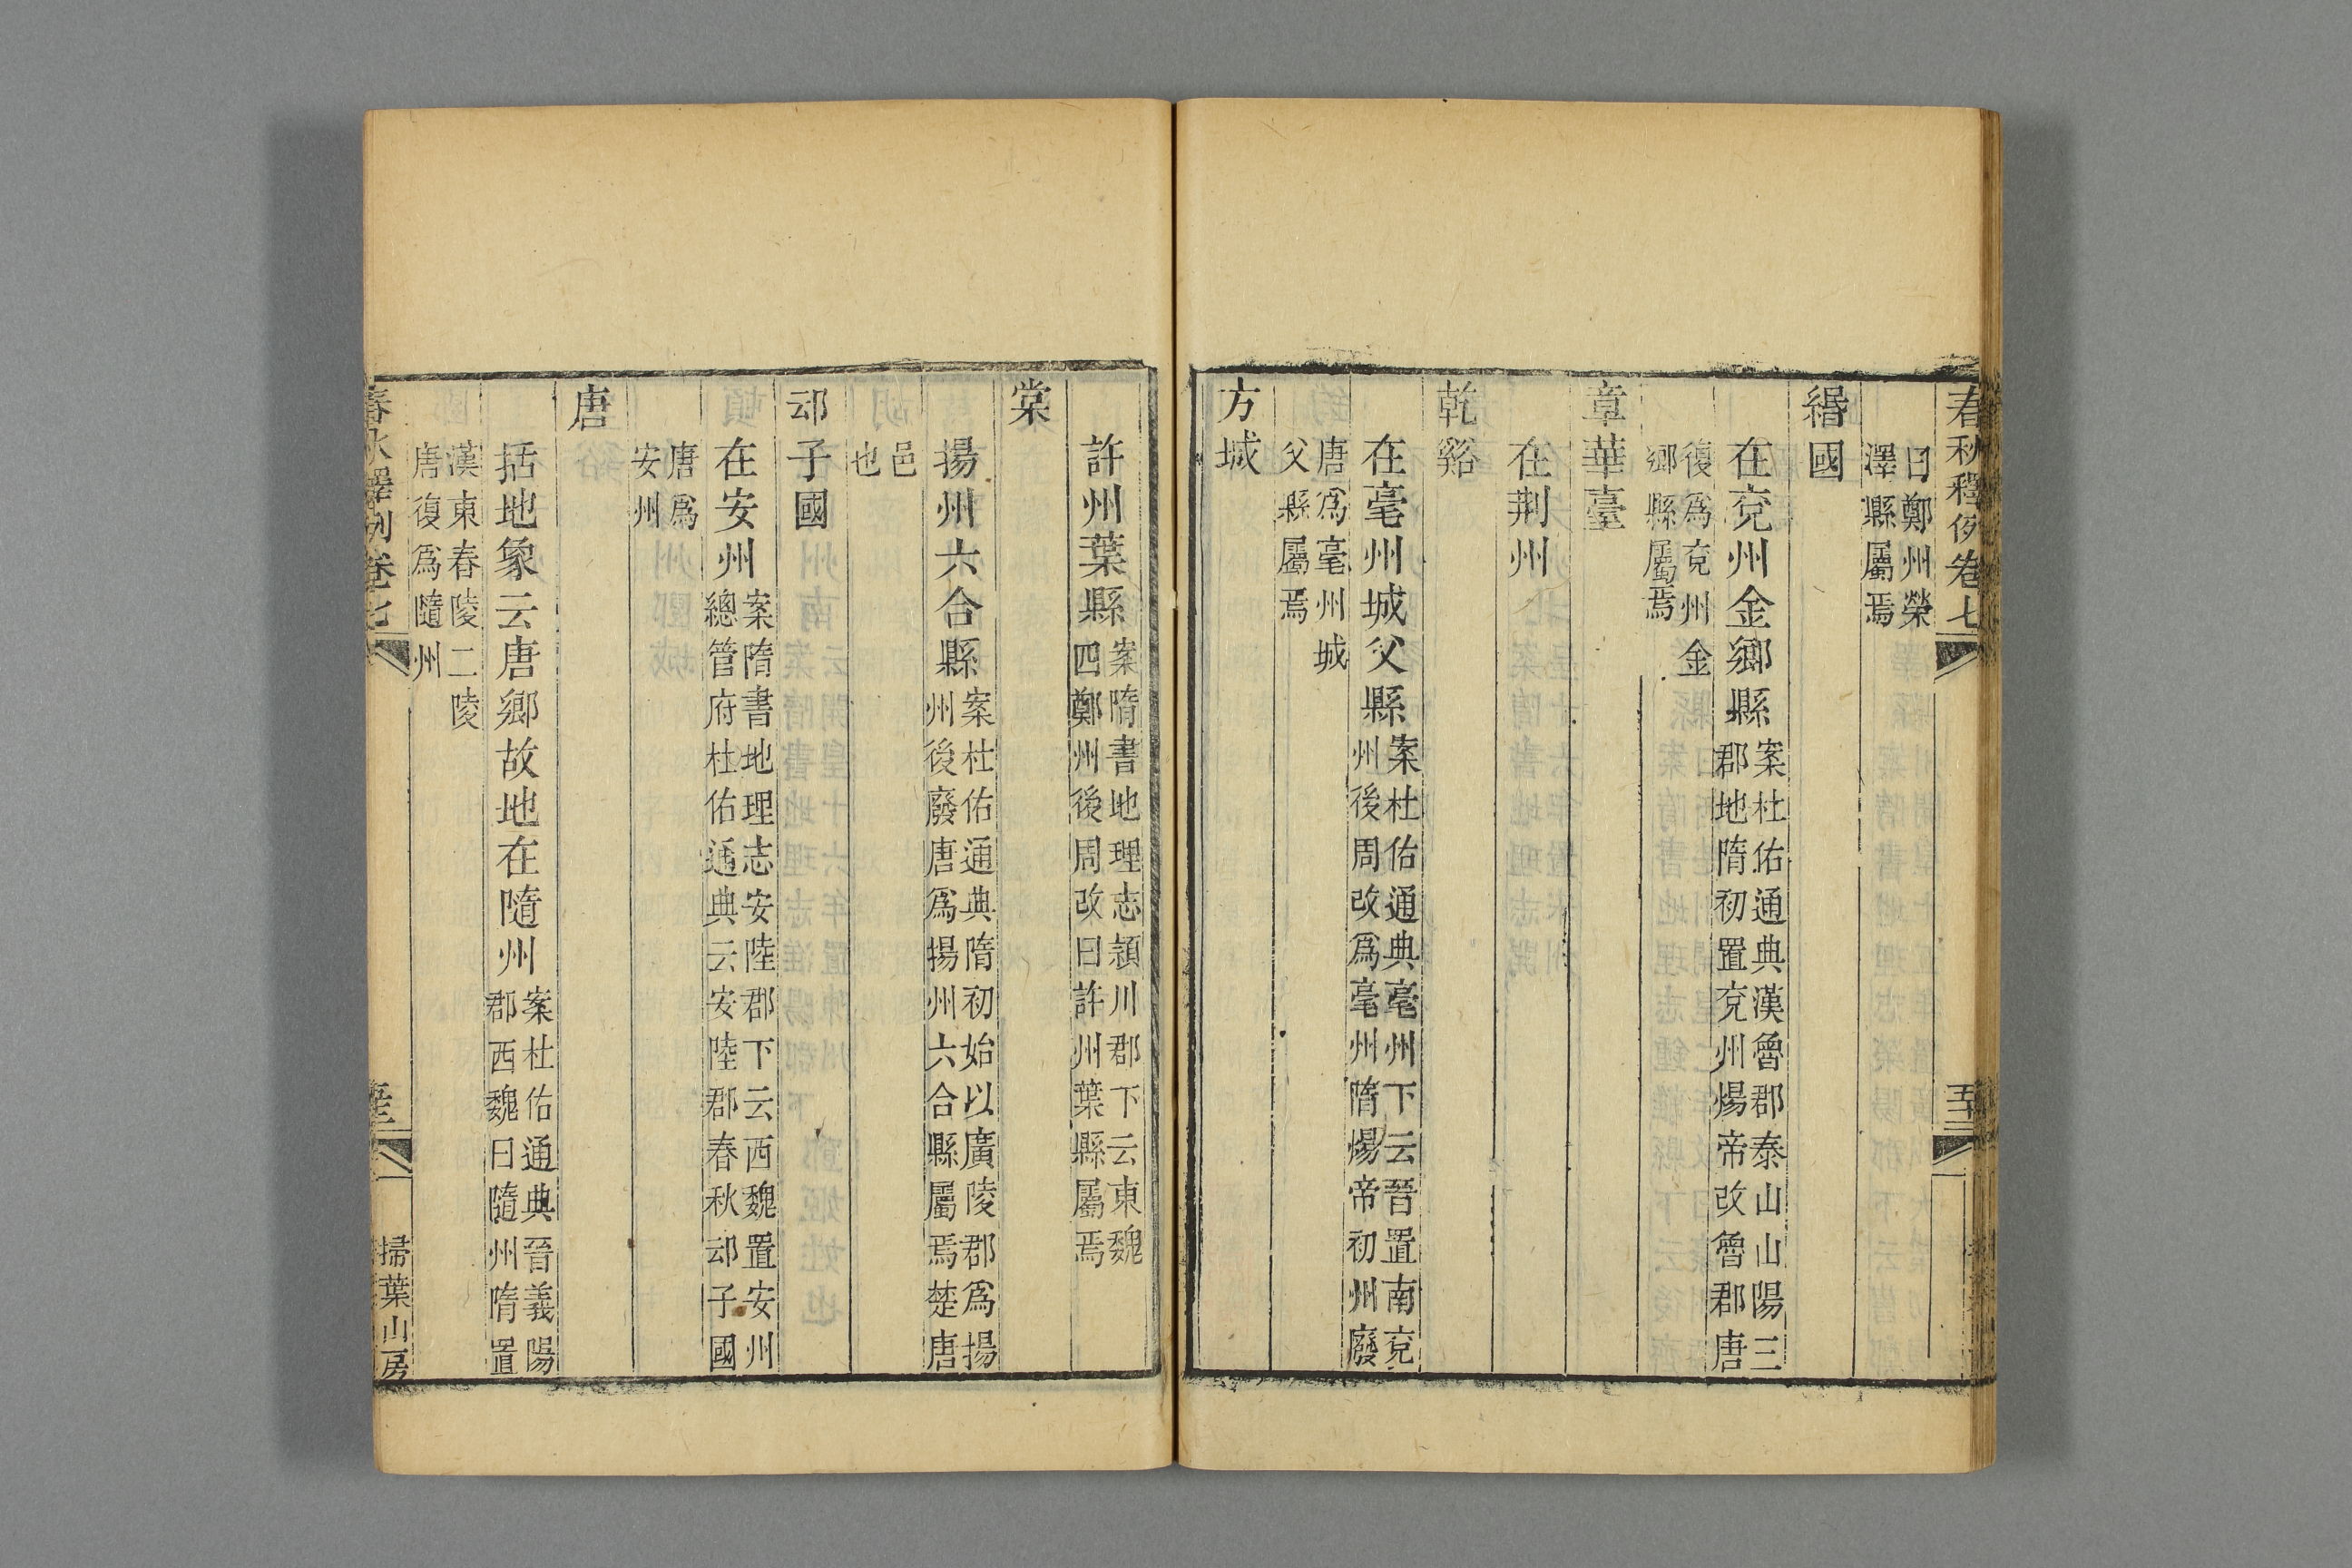 春秋釋例卷七
五十三
曰鄭州滎
澤縣屬焉
緡國
在兗州金鄉縣案杜佑通典漢魯郡泰山山陽三
郡地隋初置兗州煬帝改魯郡唐
復爲兗州金
鄉縣屬焉
章華臺
在荆州
乾谿
在亳州城父縣案杜佑通典亳州下云晉置南兗
州後周改爲亳州隋煬帝初州廢
唐爲亳州城
父縣屬焉
方城
許州葉縣案隋書地理志潁川郡下云東魏
四鄭州後周改曰許州葉縣屬焉
棠
揚州六合縣案杜佑通典隋初始以廣陵郡爲揚
州後廢唐爲揚州六合縣屬焉楚唐
邑
也
䢵子國
在安州案隋書地理志安陸郡下云西魏置安州
總管府杜佑通典云安陸郡春秋䢵子國
唐爲
安州
唐
括地象云唐鄉故地在隨州案杜佑通典晉義陽
郡西魏曰隨州隋置
漢東春陵二陵
唐復爲隨州
春秋釋例卷七
掃葉山房